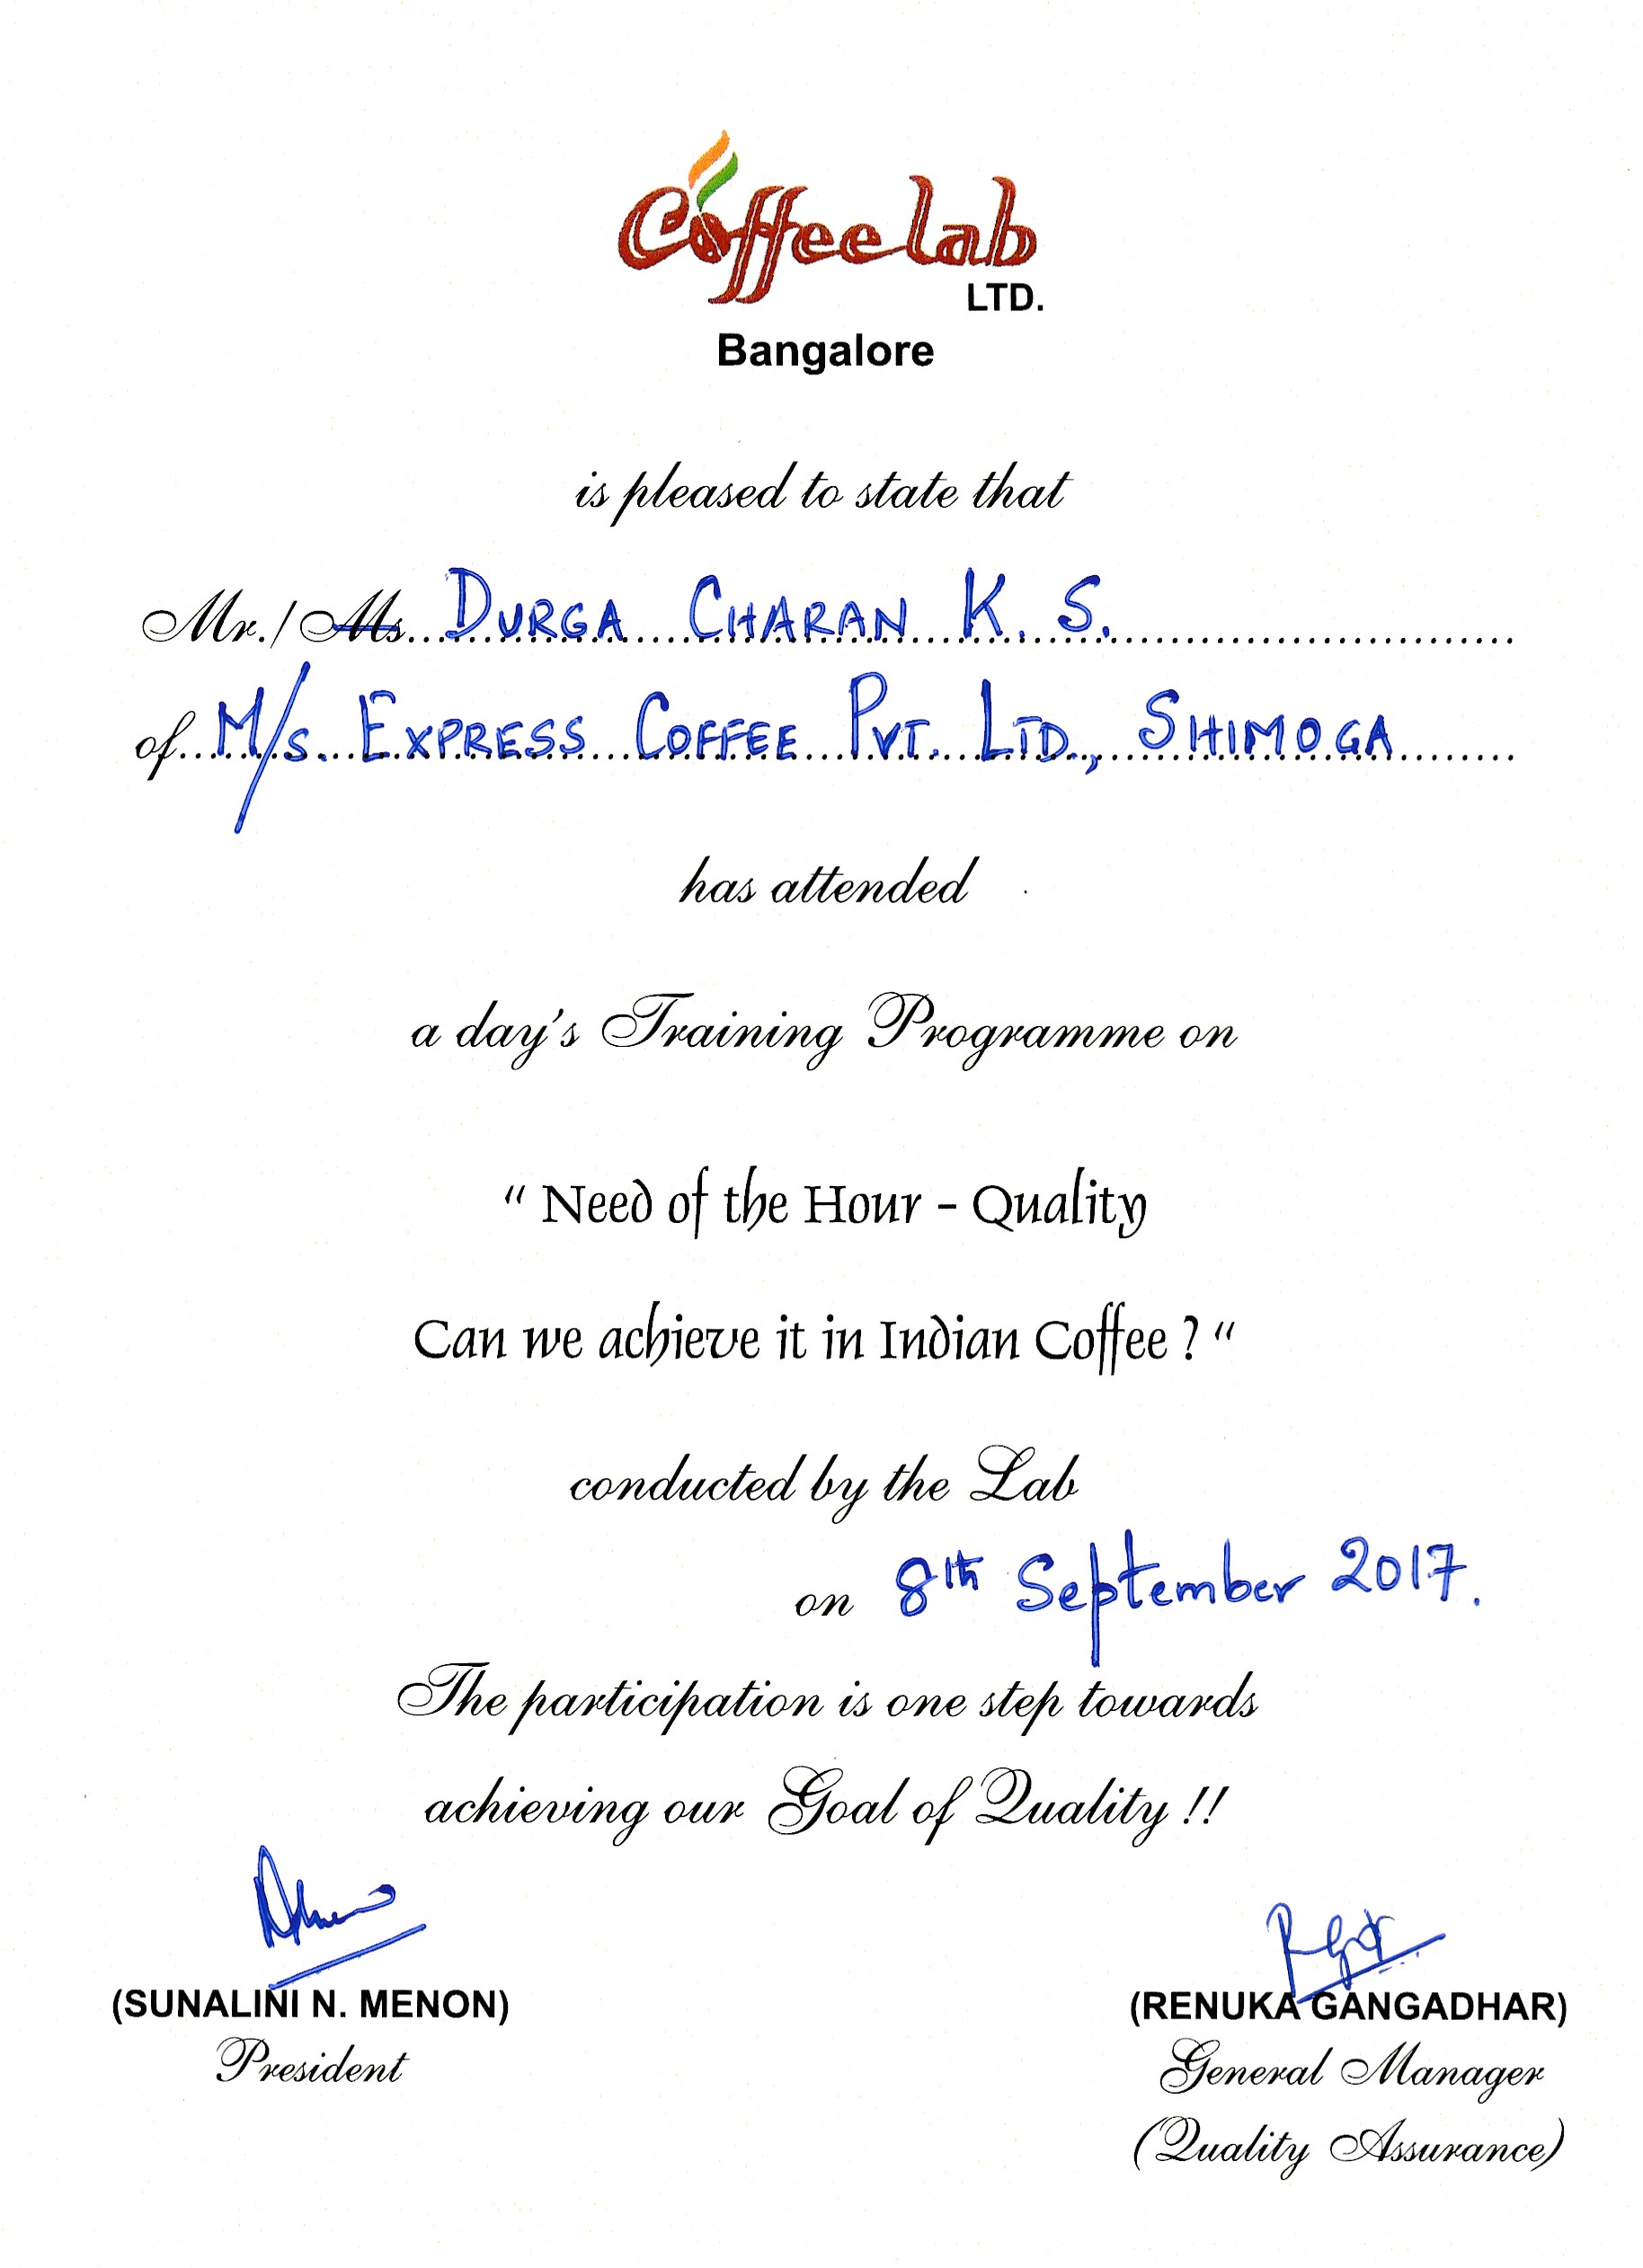 Coffeelab
LTD.
Bangalore
is pleased to state that
Mr./Ms. DURGA CHARAN K. S.
of M/s. EXPRESS COFFEE PVT. LTD., SHIMOGA
has attended
a day's Training Programme on
“ Need of the Hour - Quality
Can we achieve it in Indian Coffee ? “
conducted by the Lab
on 8th September 2017.
The participation is one step towards
achieving our Goal of Quality !!
(SUNALINI N. MENON)
President
(RENUKA GANGADHAR)
General Manager
(Quality Assurance)